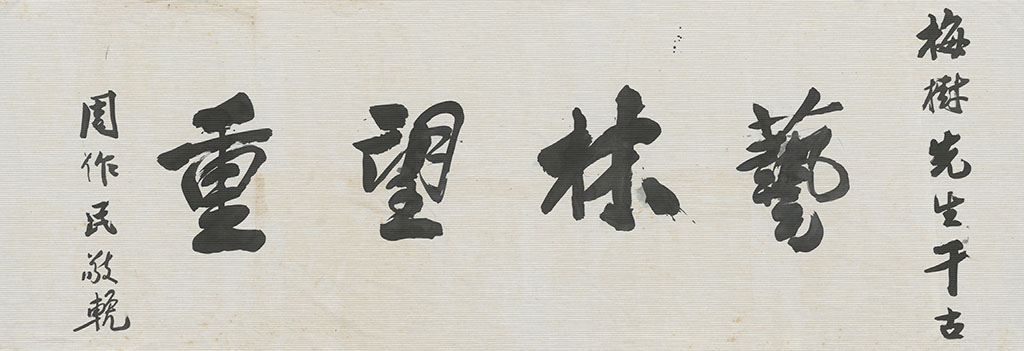 梅樹先生千古
藝林望重
周作民敬輓